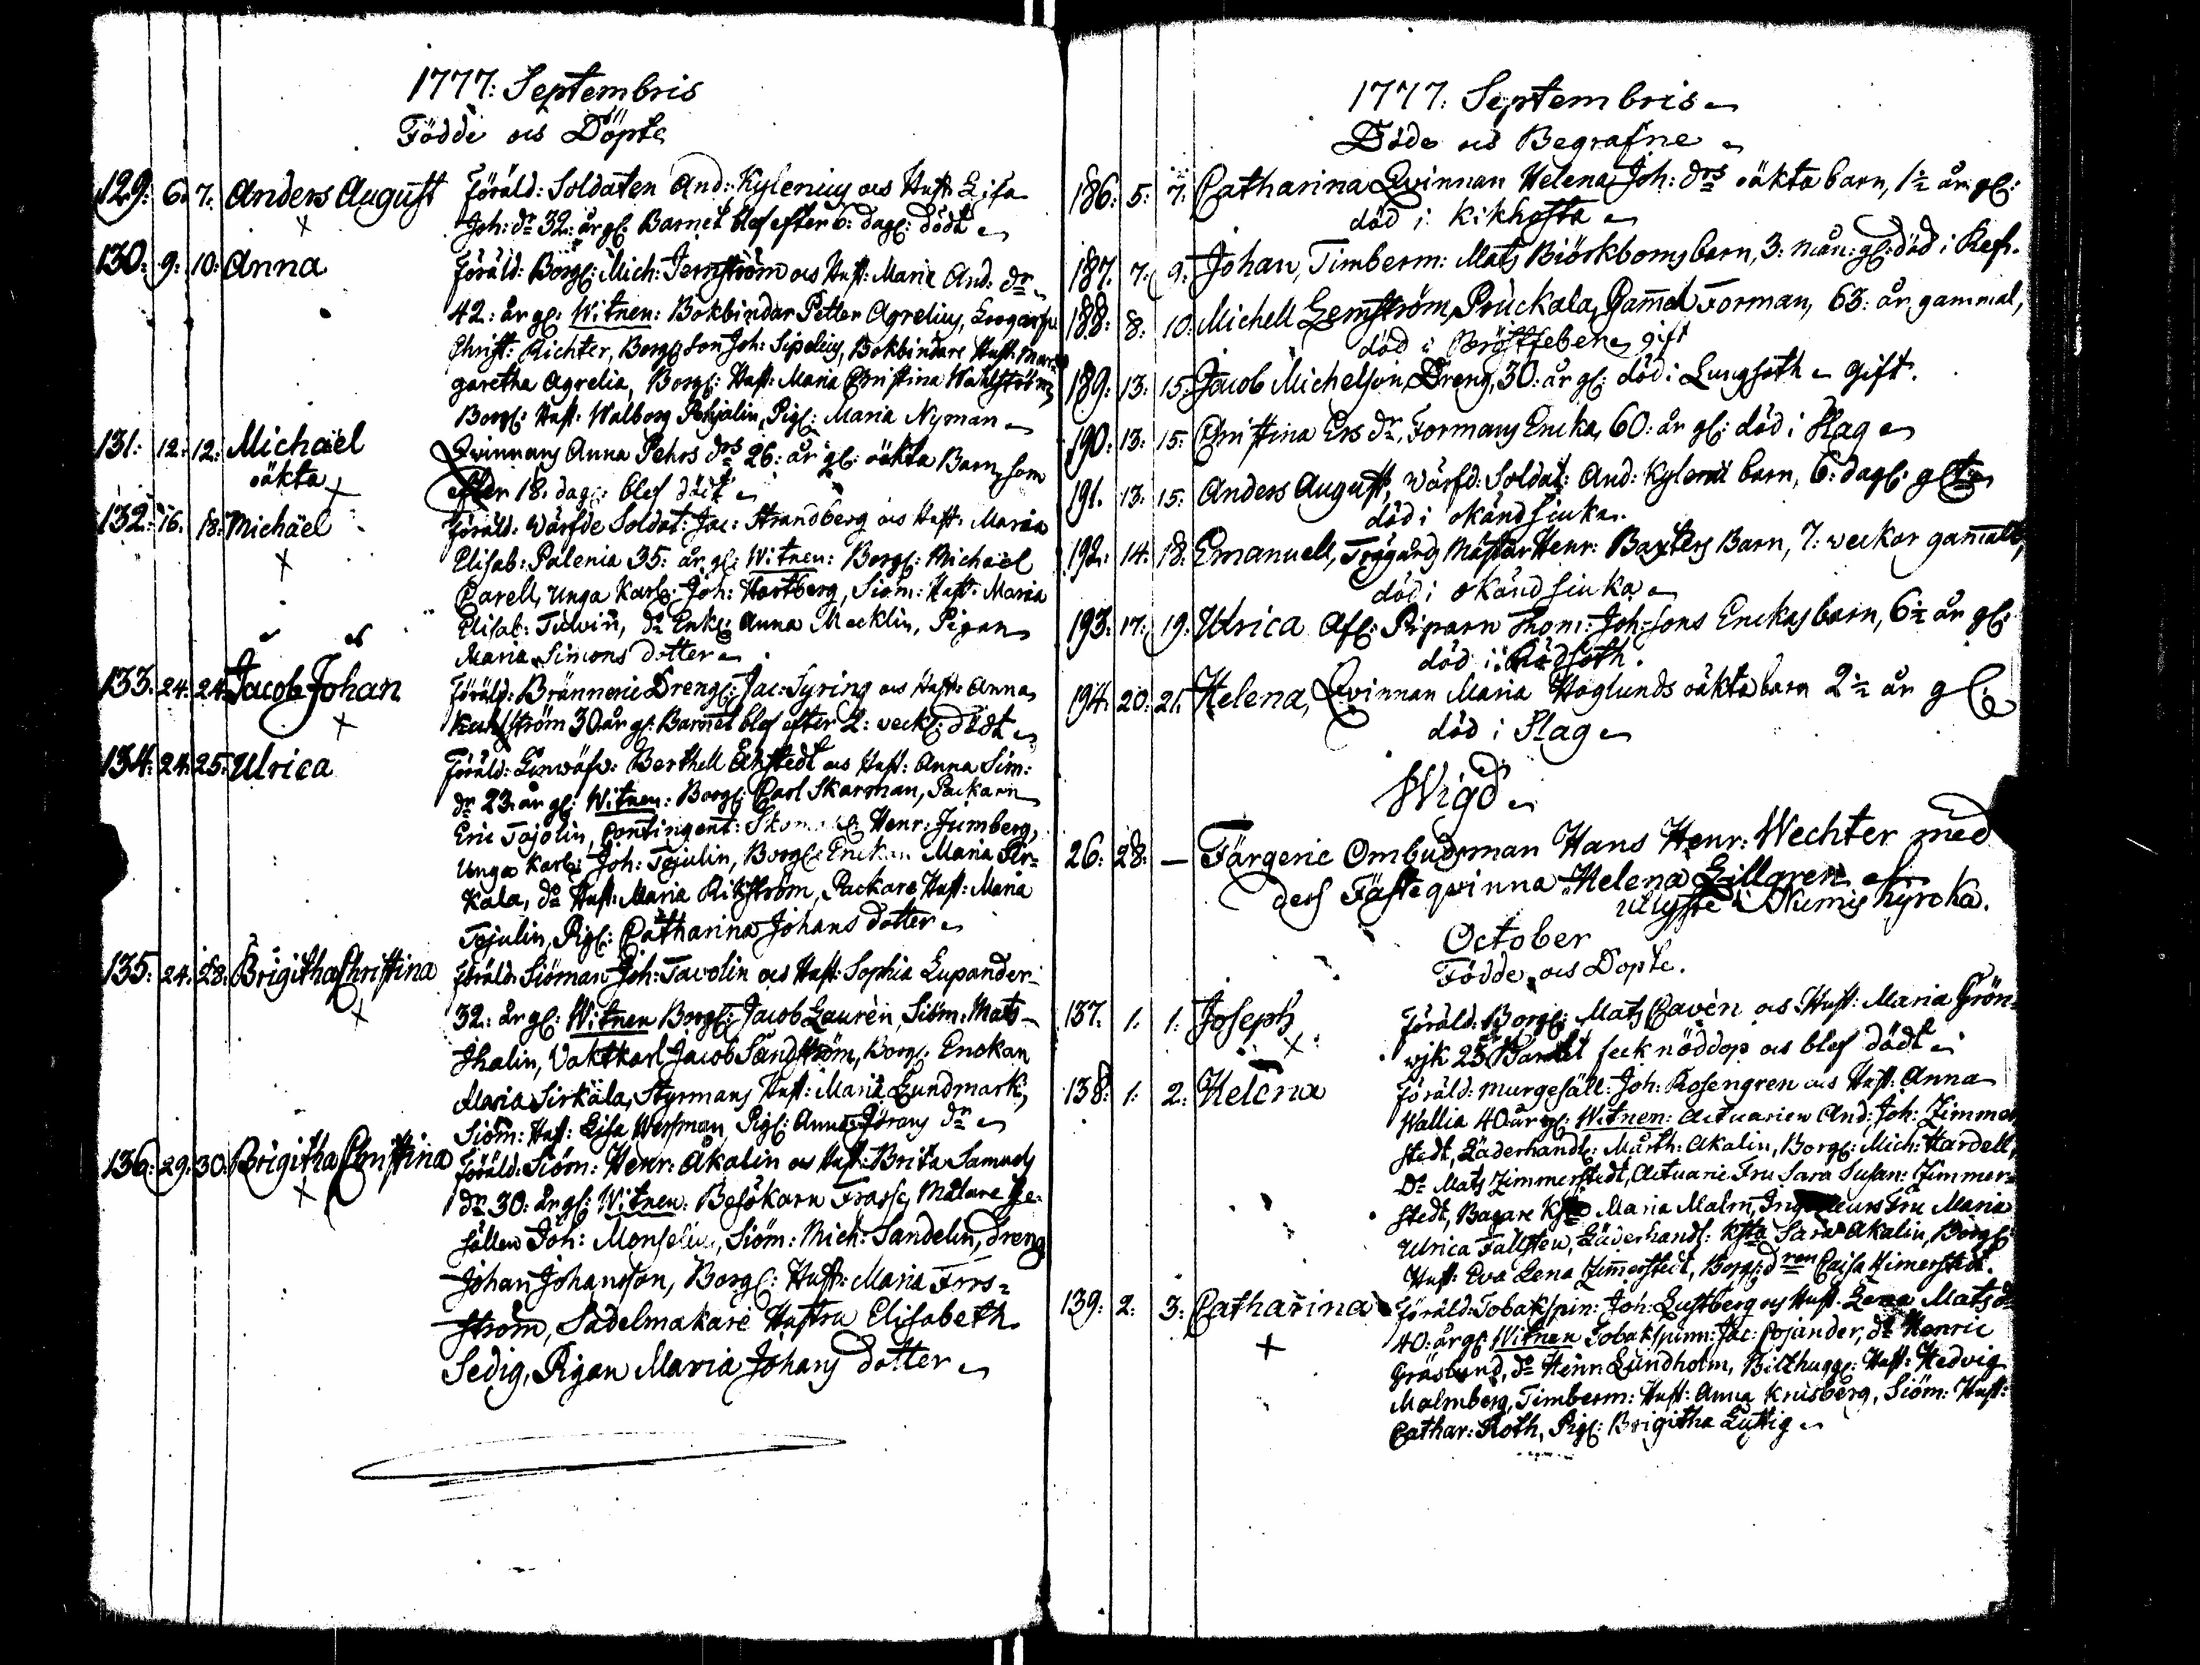 1777: Septembris
Födde ocs Döpte
129: 6. 7. Anders August Föräld: Soldaten And: Kylenius ocs Hust: Lisa
Joh: dr 32: år gl: Barnet blef efter 6: dag: dödt
130: 9: 10: Anna Föräld: Borg: Mich: Jernström ocs Hust: Maria And: dr
42: år gl: Witnen: Bokbindar Petter Agrelius,
Christ: Richter, Borg: Son Joh: Sipelius, Bokbindare Hust: Mar=
garetha Agrelia, Borg: Hust: Maria Christina Wahlström,
Borg: Hust: Walborg Pohjalin, Pig: Maria Nyman
131: 12: 12: Michaël Qvinnans Anna Pehrs drs 26: år gl: oäkta Barn, som
oäkta efter 18. dag: blef dödt
132: 16. 18: Michäel Föräld: Wärfde Soldat: Jac: Strandberg ocs Hust: Maria
Elisab: Palenia 35: år gl: Witnen: Borg: Michäel
Carell, Unga Karl: Joh: Hartberg, Siöm: Hust: Maria
Elisab: Tidvin, do Enk: Anna Mecklin, Pigan
Maria Simons dotter
133: 24: 24. Jacob Johan Föräld: Brännerie Dreng: Jac: Syring ocs Hust: Anna
Kahlström 30 år gl: Barnet blef efter 2: veck: dödt
134: 24: 25: Ulrica Föräld: Linwäfv: Berthell Ekstedt ocs Hust: Anna Sim:
dr 23. år gl: Witnen: Borg: Carl Skarman, Packarn
Eric Tojolin, Contingent: Henr: Jumberg,
Unga Karl: Joh: Tojulin, Borg: Enckan Maria Sir=
kala, do Hust: Maria Ritzström, Packare Hust: Maria
Tojulin, Pig: Catharina Johans dotter
135: 24: 28: Brigitha Christina Föräld: Siöman Joh: Tavolin ocs Hust: Sophia Lupander
32: år gl: Witnen Borg: Jacob Laurèn, Siöm: Mats
Thalin, Vaktkarl Jacob Sandström, Borg: Enckan
Maria Sirkäla, Styrmans Hust: Maria Lundmark,
Siöm: Hust: Lisa Wessman, Pig: Anna Jörans dr
136: 29: 30: Brigitha Christina Föräld: Siöm: Henr: Akalin ocs Hust: Brita Samuels
dr 30: år gl: Witnen: Besökarn Frasse, Målare Ge=
sällen Joh: Siöm: Mich: Sandelin, Dreng
Johan Johansson, Borg: Hust: Maria Fors=
ström, Sadelmakare Hustru Elisabeth
Sedig, Pigan Maria Johans dotter
1777: Septembris
Döde ocs Begrafne
186: 5: 7: Catharina Qvinnan Helena Joh: drs oäkta barn, 1 1/2 år gl:
död i Kikhosta
187. 7: 9: Johan, Timberm: Mats Biörkboms barn, 3: mån: gl: död i Kefs.
188: 8: 10: Michell Lemström, Pruckala, Gamel Forman, 63: år gammal,
död i Bröstfeber, gift
189: 13: 15: Jacob Michelson, Dreng, 30: år gl: död i Lungsoth gift.
190: 13: 15: Christina Ers dr, Formans Encka, 60: år gl: död i Slag
191. 13. 15: Anders August, Wärfd: Soldat: And: Kylenii barn, 6: dag: glt
död i okänd siuka.
192: 14: 18: Emanuell, Trägårds Mästar Henr: Baxters Barn, 7: veckor gamalt,
död i okänd siuka
193: 17: 19: Ulrica Afl: Riparn Thom: Joh: sons Enckas barn, 6 1/2 år gl:
död i Rödsoth.
194. 20: 21. Helena, Qvinnan Maria Höglunds oäkta barn 2 1/2 år gl:
död i Slag
Wigd
26: 28: — Färgerie Ombudsman Hans Henr: Wechter med
dess Fästeqvinna Helena Lillgren
utlyste i Numis Kyrcka.
October
Födde ocs Döpte.
137. 1. 1: Joseph Föräld: Borg: Mats Cavèn ocs Hust: Maria Grön=
wik 25 Barnet feck nöddop ocs blef dödt
138: 1. 2: Helena Föräld: Murgesäll: Joh: Rosengren ocs Hust: Anna
Wallia 40 år gl: Witnen: Actuarien And: Joh: Zimmer
stedt, Läderhandl: Marth: Akalin, Borg: Mich: Hardell,
Do Mats Zimmerstedt, Actuarie Fru Sara Susan: Zimmer=
stedt, Bagare Maria Malm, Fru Maria
Ulrica Fallsten, Läderhandl: Ksta Sara Akalin, Borg:
Hust: Eva Lena Zimerstedt, Borg: dren Caisa Zimerstedt.
139: 2: 3: Catharina Föräld: Tobakspin: Joh: Lustberg ocs Hust: Lena Mats dr
40: år gl: Witnen Tobakspinn: Jac: Pojander, do Henric
Gräslund, do Henr: Lundholm, Bilthugg: Hust: Hedvig
Malmberg, Timberm: Hust: Anna Krusberg, Siöm: Hust:
Cathar: Roth, Pig: Brigitha Luttig